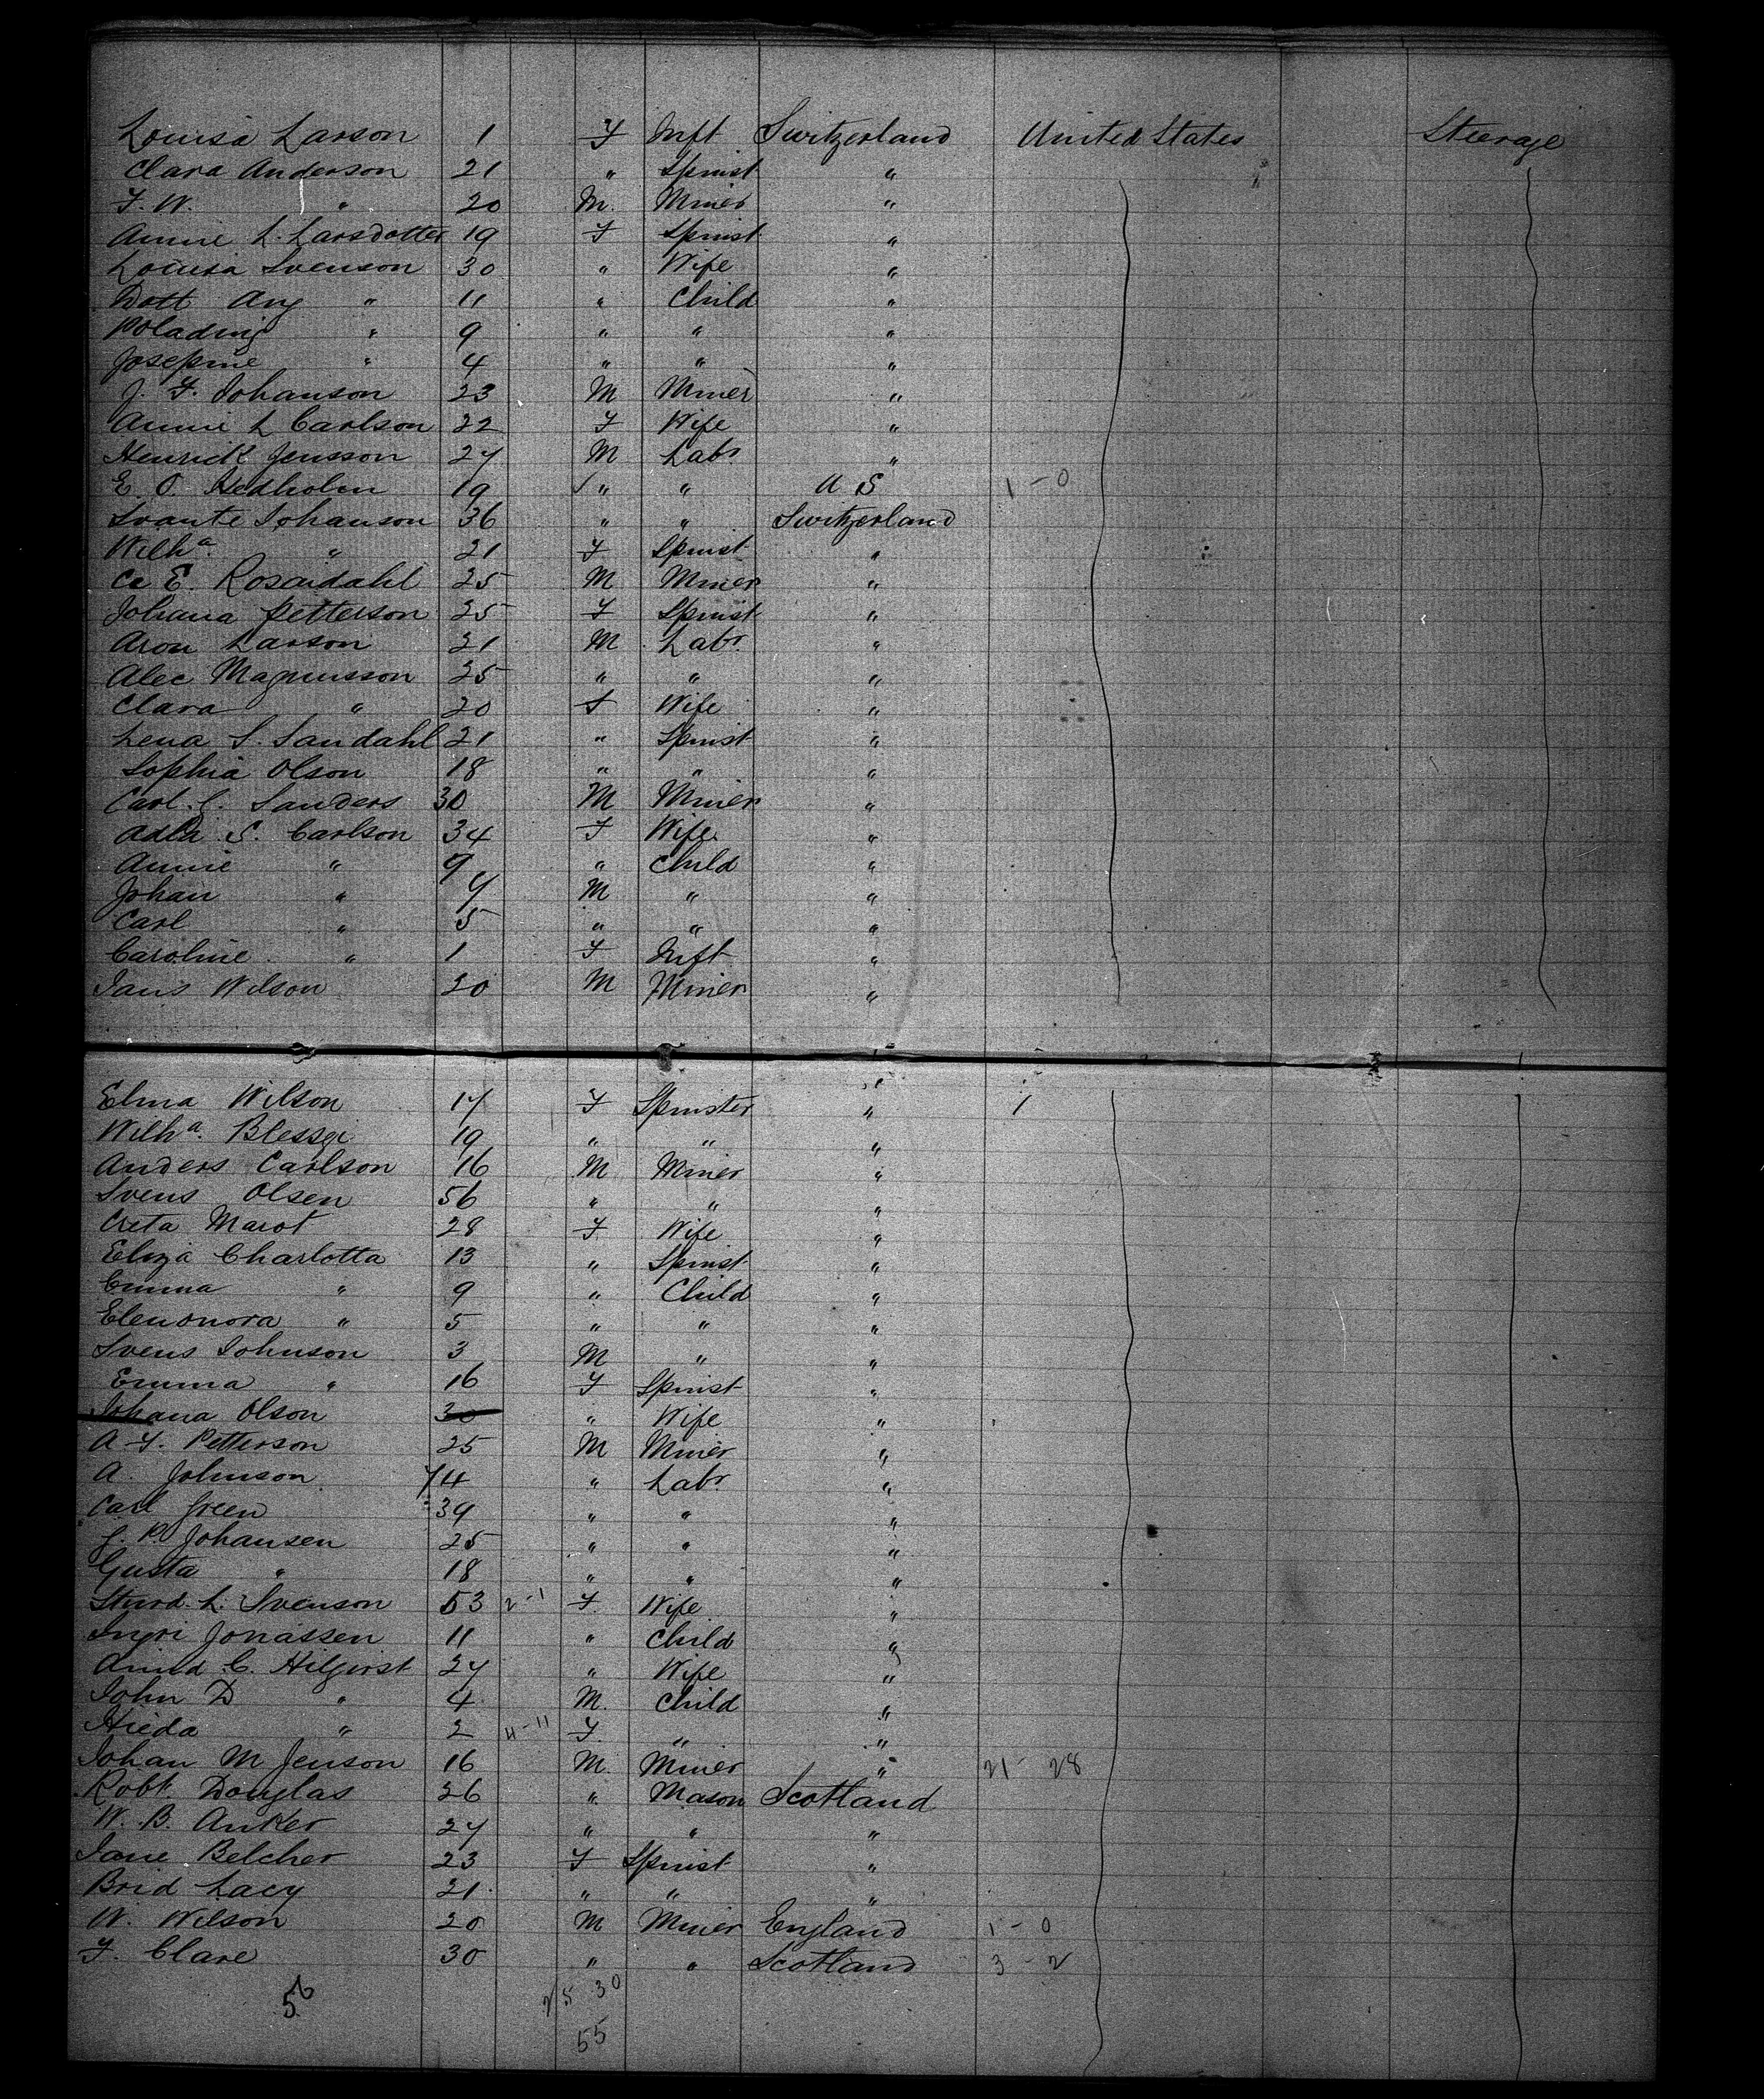 Louisa Larson 1 F Inft Switzerland United States Steerage
Clara Anderson 21 " Spinst "
F. W. " 20 M. Miner "
Annie L. Larsdotter 19 F Spinst "
Louisa Svenson 30 " Wife "
Dott Aug " 11 " Child "
" 9 " " "
Josepine " 4 " " "
J. F. Johanson 23 M Miner "
Annie L Carlson 22 F Wife "
Henrick Jensson 27 M Labr "
E. O. Hedholm 19 " " U S 1 - 0
Svante Johanson 36 " " Switzerland
Wilha " 21 F Spinst "
E. 25 M Miner "
Johana Petterson 25 F Spinst "
Aron Larson 21 M Labr "
Alec Magnusson 25 " " "
Clara " 20 F Wife "
Lena S. Sandahl 21 " Spinst "
Sophia Olson 18 " " "
Carl C. Sanders 30 M Miner "
Adla S. Carlson 34 F Wife "
Annie " 9 " Child "
Johan " 7 M " "
Carl " 5 " " "
Caroline " 1 F Inft "
Jans Wilson 20 M Miner "
Elma Wilson 17 F Spinster " 1
Wilha 19 " " "
Anders Carlson 16 M Miner "
Svens Olsen 56 " " "
Creta Marot 28 F Wife "
Eliza Charlotta 13 " Spinst "
Emma " 9 " Child "
Elenonora " 5 " " "
Svens Johnson 3 M " "
Emma " 16 F Spinst "
Johana Olson 30 " Wife "
A. F. Petterson 25 M Miner "
A. Johnson 74 " Labr "
Carl Green 39 " " "
J. P. Johansen 25 " " "
Gusta " 18 " " "
L. Svenson 53 2-1 F Wife "
Ingri Jonassen 11 " Child "
C. 27 " Wife "
John D " 4 M. Child "
Hieda " 2 11-11 F. " "
Johan M Jenson 16 M. Miner " 21 - 28
Robt. Douglas 26 " Mason Scotland
W. B. Anker 27 " " "
Jane Belcher 23 F Spinst "
Brid Lacy 21 " " "
W. Wilson 20 M Miner England 1 - 0
F. Clare 30 " " Scotland 3 - 2
56 25 30
55